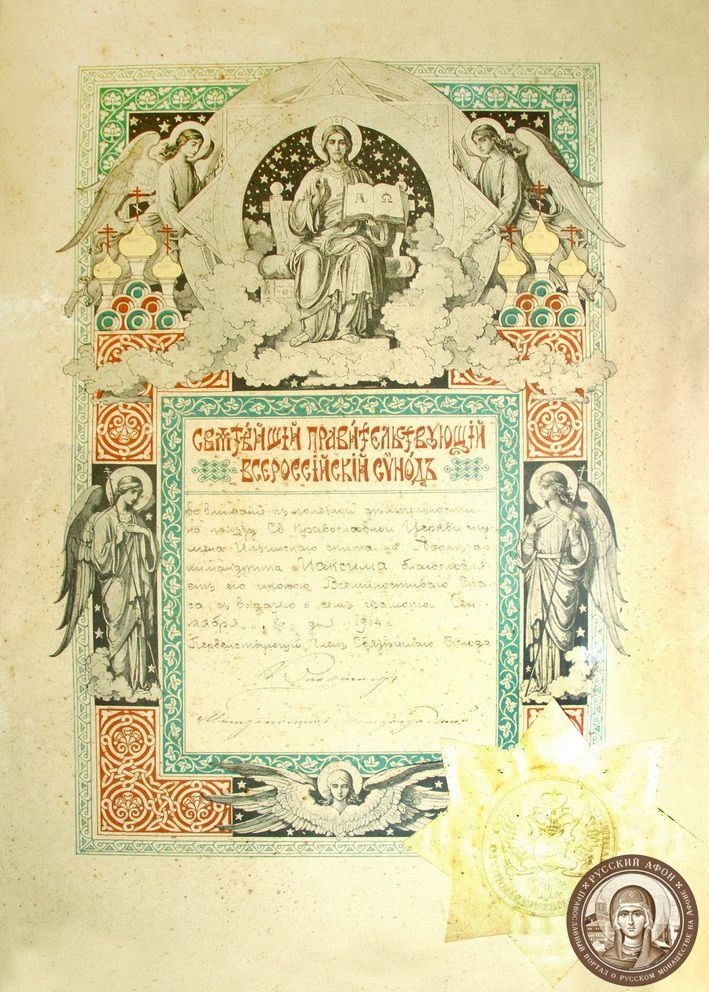 Α Ω
СВѦТѢЙШІЙ ПРАВИТЕЛЬСТВУЮЩІЙ
ВСЕРОССІЙСКІЙ СѴНОДЪ
во вниманіе къ полезной дѣятельности
на пользу Св. Православной Церкви игу-
мена Ильинскаго скита на Аѳонѣ ар-
химандрита Максима благословля-
етъ его иконою Всемилостиваго Спа-
са, въ выдано о семъ грамота Сен-
тября дня 1914 г.
Первенствующій Членъ Святѣйшаго Сѵнода
Митрополитъ
РУССКИЙ АФОН
ПРАВОСЛАВНЫЙ ПОРТАЛ О РУССКОМ МОНАШЕСТВЕ НА АФОНЕ